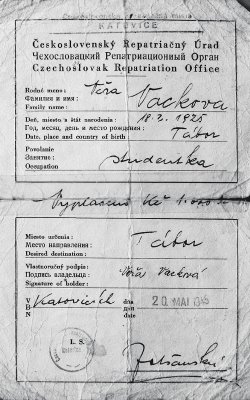 KATOVICE
Československý Repatriačný Úrad
Чехословацкий Репатриационный Орган
Czechoslovak Repatriation Office
Rodné meno :
Фамилия и имя :
Family name :
Věra Vackova
Deň, miesto a štát narodenia :
Год, месяц, день и место рождения :
Date, place and country of birth :
18. 2. 1925
Tábor
Povolanie
Занятие :
Occupation
studentka
Vyplaceno Kč 1.000
Miesto určenia :
Место направления :
Desired destination :
Tábor
Vlastnoručný podpis :
Подпись владельца :
Signature of holder :
Věra Vacková
V
В
N
Katovicích
dňa
дня
date
20 MAI 1945
L. S.